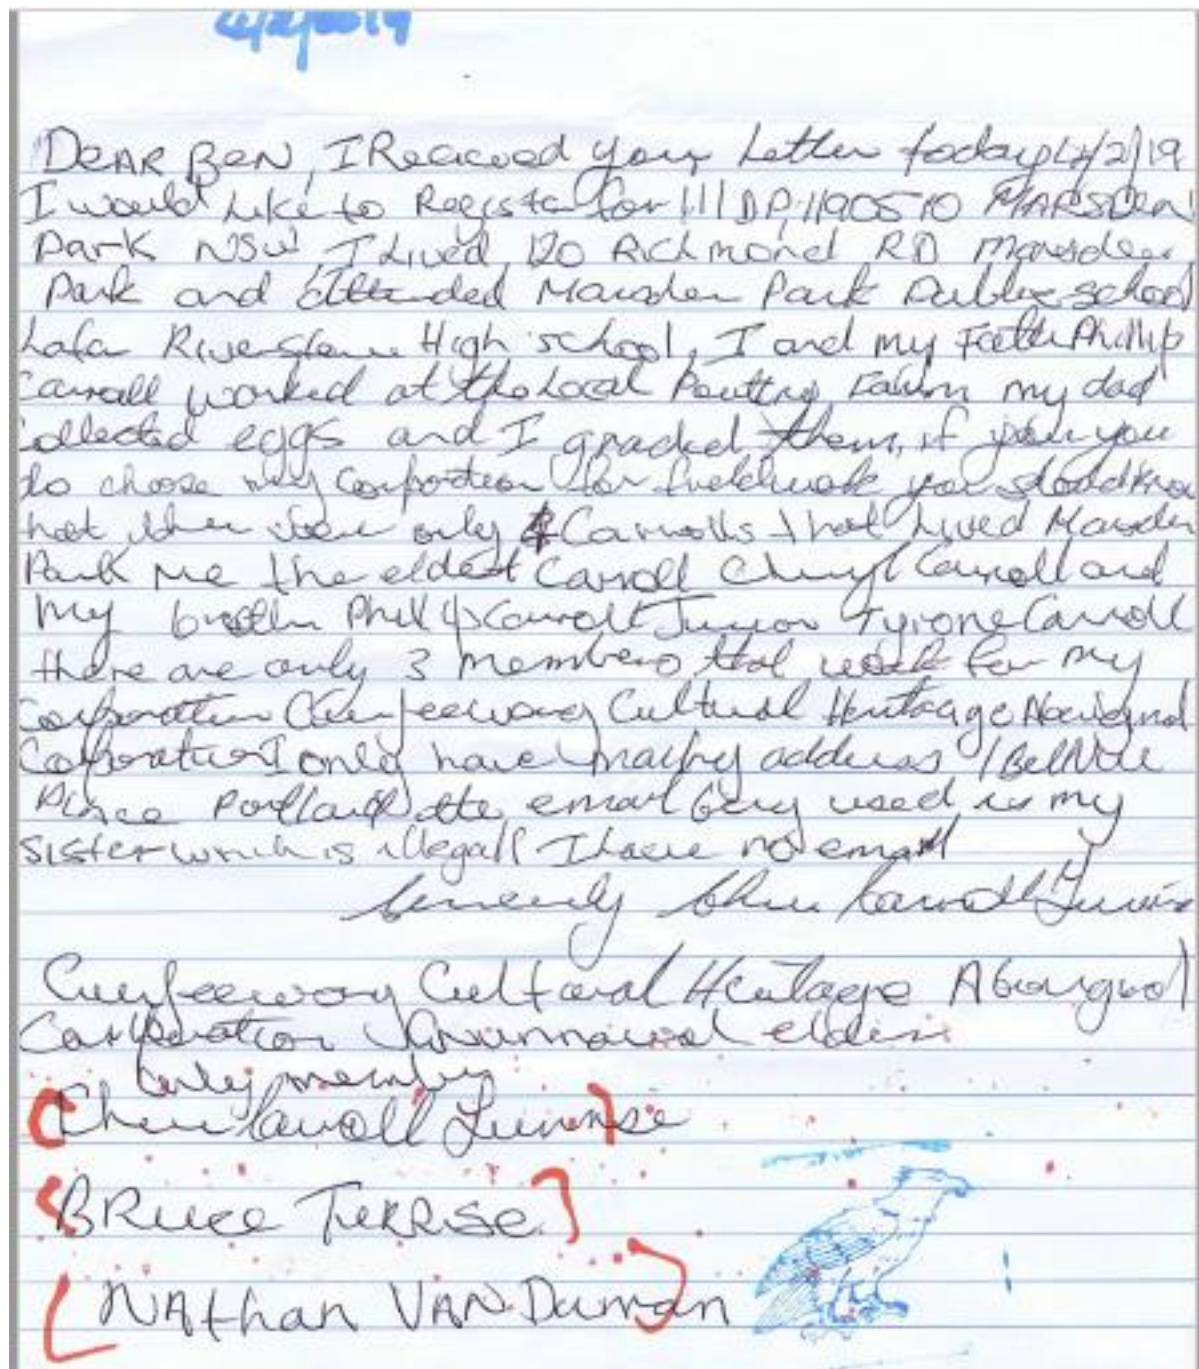 DEAR BEN, I Recieved your Letter today 12/2/19
I would Like to Register for 111 DP,1190510 MARSDEN
Park NSW, I Lived 120 Richmond RD Marsden
Park and attended Marsden Park Public school
Later Riverstone High school, I and my Father Phillip
Carroll worked at the Local Poultry Farm my dad
collected eggs and I graded them, if you
do choose my corporation for fieldwork you should know
that there were only 4 Carrolls that Lived Marsden
Park me the eldest Carroll Cheryl Carroll and
my brother Phillip Carroll Junior Tyrone Carroll
there are only 3 members that work for my
corporation Cultural Heritage Aboriginal
Corporation I only have mailing address 1 Bellvue
Place Portland the email being used is my
sister which is illegall I have no email
Sincerely Carroll
Cultural Heritage Aboriginal
Corporation elders
only members
Carroll
BRuce TURRISe
NAthan VAN